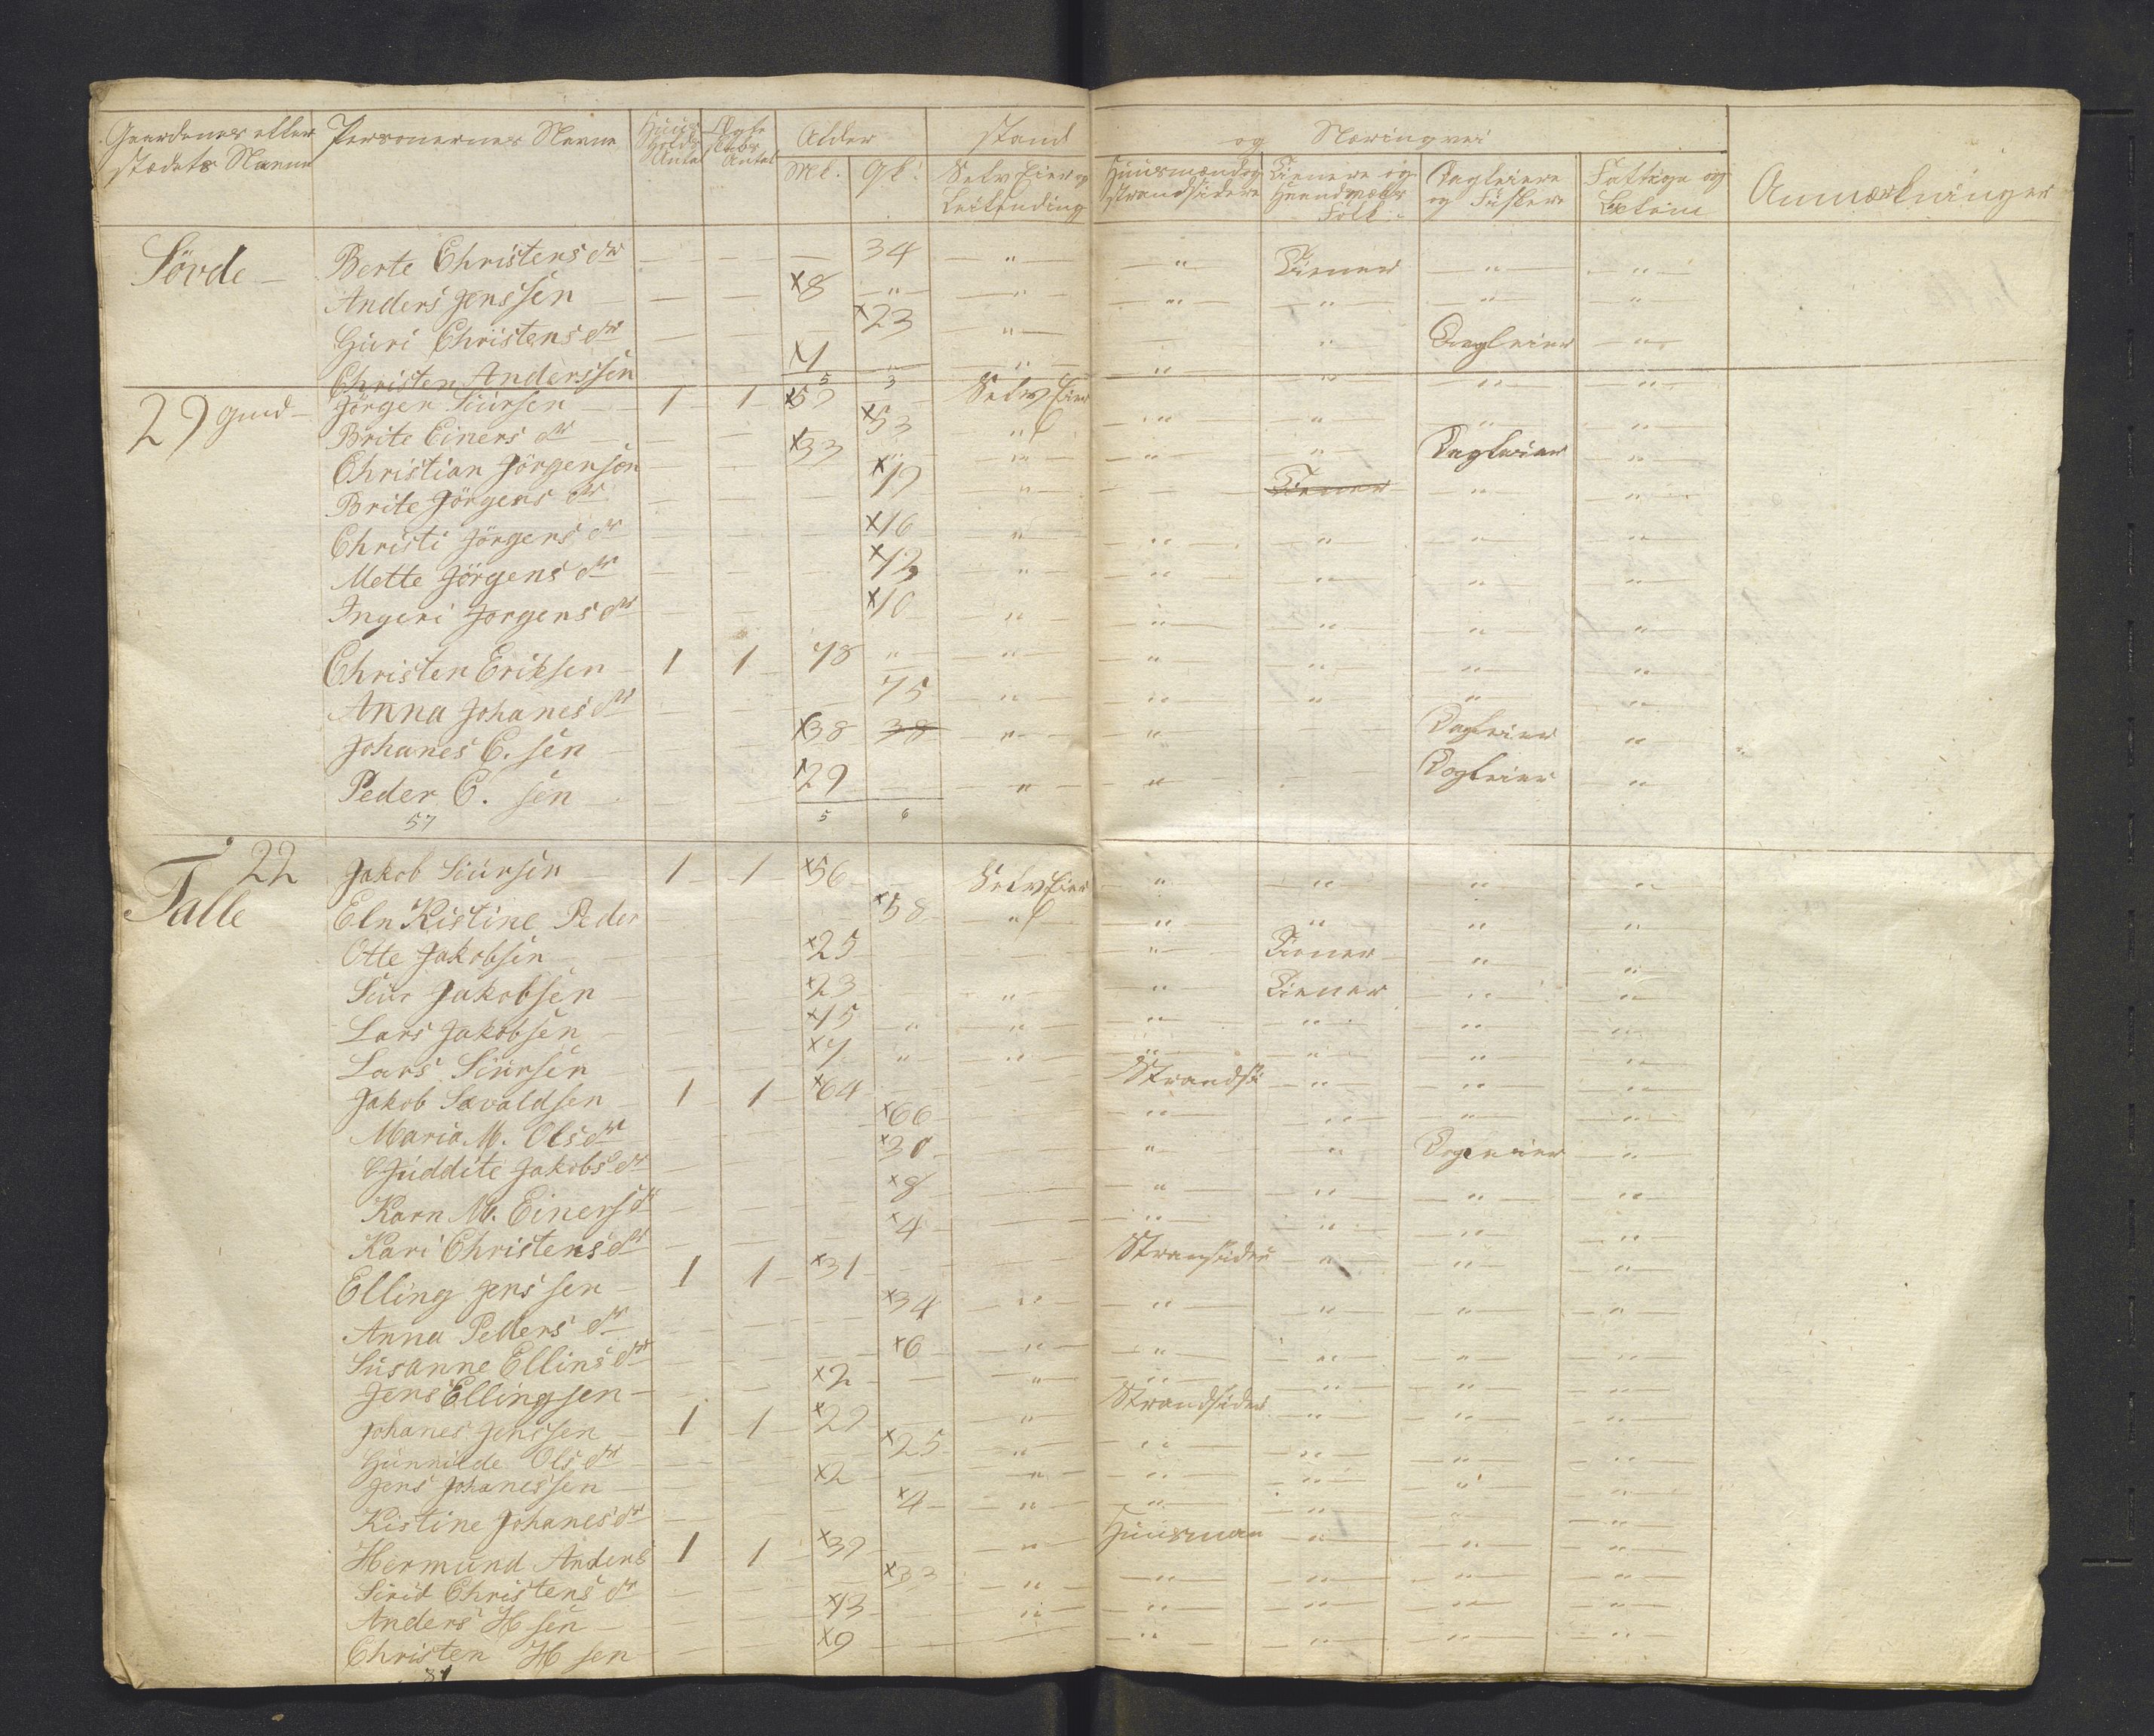 Gaardenes eller stædets Navne | Personernes Navne | Huus holds Antal | Ægte skabs Antal | Alder | Stand og Næringvei | Anmærkninger
Mk. | Qk. | Selv Eier og Leilending | Huusmænd og Strandsidere | Tienere og Haandværks Folk | Dagleiere og Inderster | Fattige og
Sövde Berte Christens dr — — — 34 — " — " Tiener — " — " —
Anders Jenssen — — x8 — " —
Guri Christens dr — — x23 — " — Dagleier — " —
Christen Anderssen 1 — " —
5 3
29 gmd Jörgen Siursen 1 1 x59 Selv Eier
Brite Einers dr — — x53
Christian Jörgensön x33 Dagleier
Brite Jörgens dr x19 Tiener
Christi Jörgens dr x16
Mette Jörgens dr x12
Ingeri Jorgens dr x10
Christen Eriksen 1 1 78
Anna Johanes dr 75
Johanes C. sen x38 38 Dagleier
Peder C. sen 29 Dagleier
57 5 6
22 Talle Jakob Siursen 1 1 x56 Selv Eier
Eln Kistine Peder x58
Otte Jakobsen x25 Tiener
Siur Jakobsen x23 Tiener
Lars Jakobsen x15
Lars Siursen x7
Jakob Savaldsen 1 1 x64 Strandsi
Maria M. Ols dr x66
Guddite Jakobs dr x30 Dagleier
Karn M. Einers dr x8
Kari Christens dr x4
Elling Jenssen 1 1 x31 Stransider
Anna Peders dr x34
Susanne Ellins dr x6
Jens Ellingsen x2
Johanes Jenssen 1 1 x29 Strandsider
Gunnilde Ols dr x25
Jens Johanessen x2
Kistine Johanes dr x4
Hermund Anders 1 1 x39 Huusman
Sirid Christens dr x33
Anders H sen x13
Christen H sen x9
81